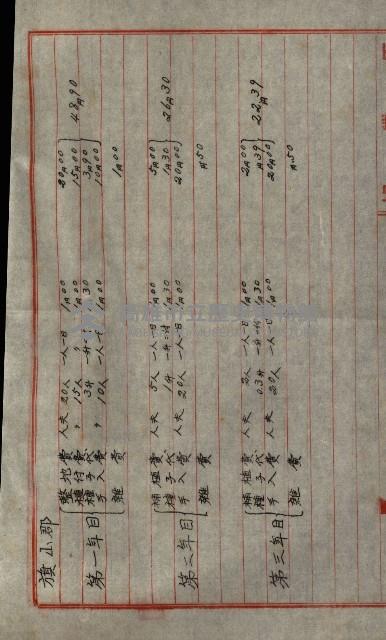 旗山郡
第一年目
整地費 人夫 20人 一人一日 1円00 20円00
植付費 〃 15人 〃 1円00 15円00
種子代 3升 一升 1円30 3円90
手入費 〃 10人 一人一日 1円00 10円00
48円90
雑費 1円00
第二年目
補植費 人夫 5人 一人一日 1円00 5円00
種子代 1升 一升ニ付 1円30 1円30
手入費 人夫 20人 一人一日 1円00 20円00
26円30
雑費 円50
第三年目
補植費 人夫 2人 一人一日 1円00 2円00
種子代 0.3升 一升ニ付 1円30 円39
手入費 人夫 20人 一人一日 1円00 20円00
22円39
雑費 円50